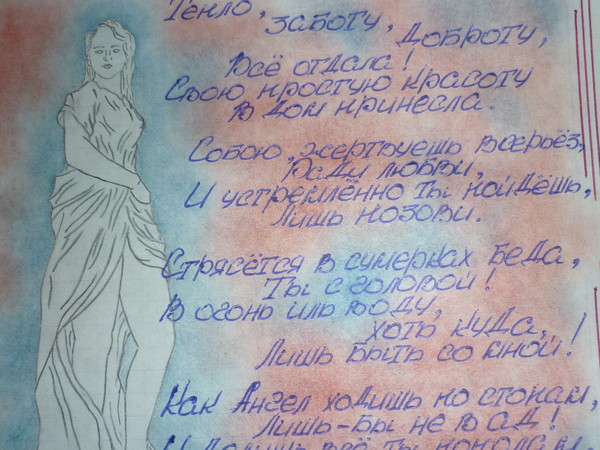 Тепло,
заботу,
доброту,
Всё отдала!
Свою простую красоту
В дом принесла.
Собою, жертвуешь всерьёз,
Ради любви,
И устремлённо ты пойдёшь,
Лишь позови.
Стрясётся в сумерках беда,
Ты с головой!
В огонь иль воду,
хоть куда,
Лишь быть со мной!
Как Ангел ходишь по стопам,
Лишь-бы не в ад!
И делишь всё ты пополам,